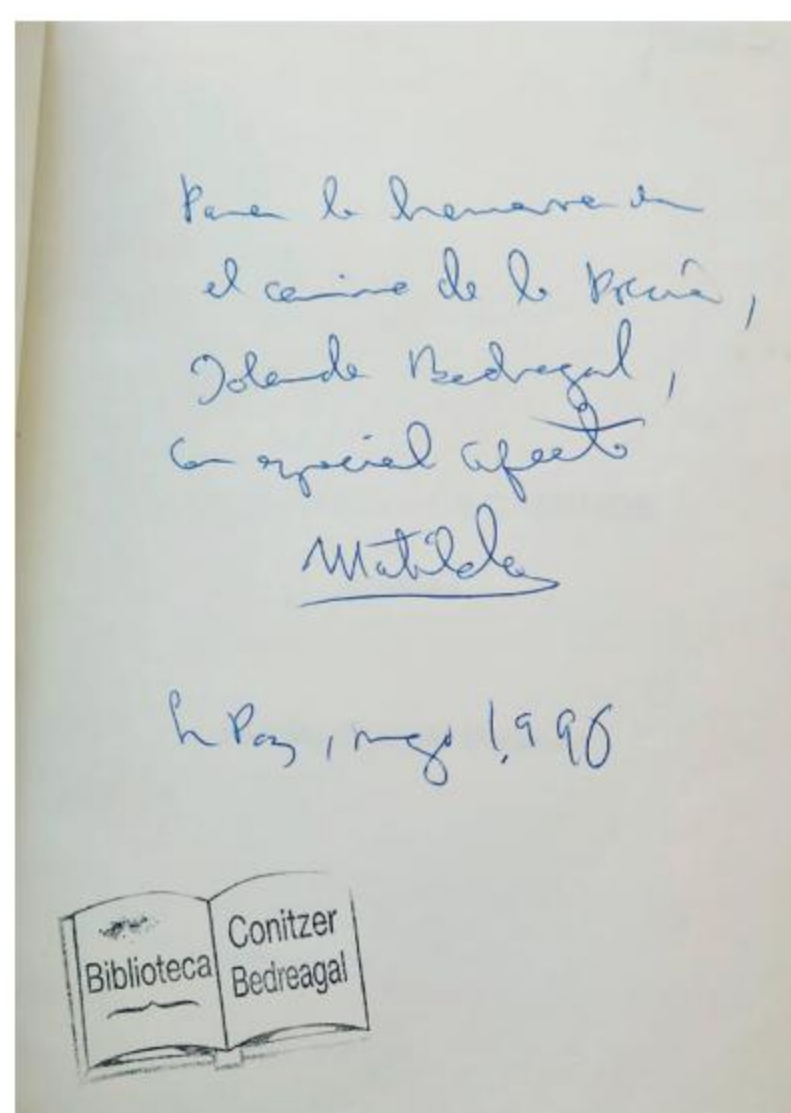 Para la hermana en
el camino de la Poesía,
Yolanda Bedregal,
con especial afecto
Matilde
La Paz, mayo 1.996
Biblioteca
Conitzer
Bedreagal